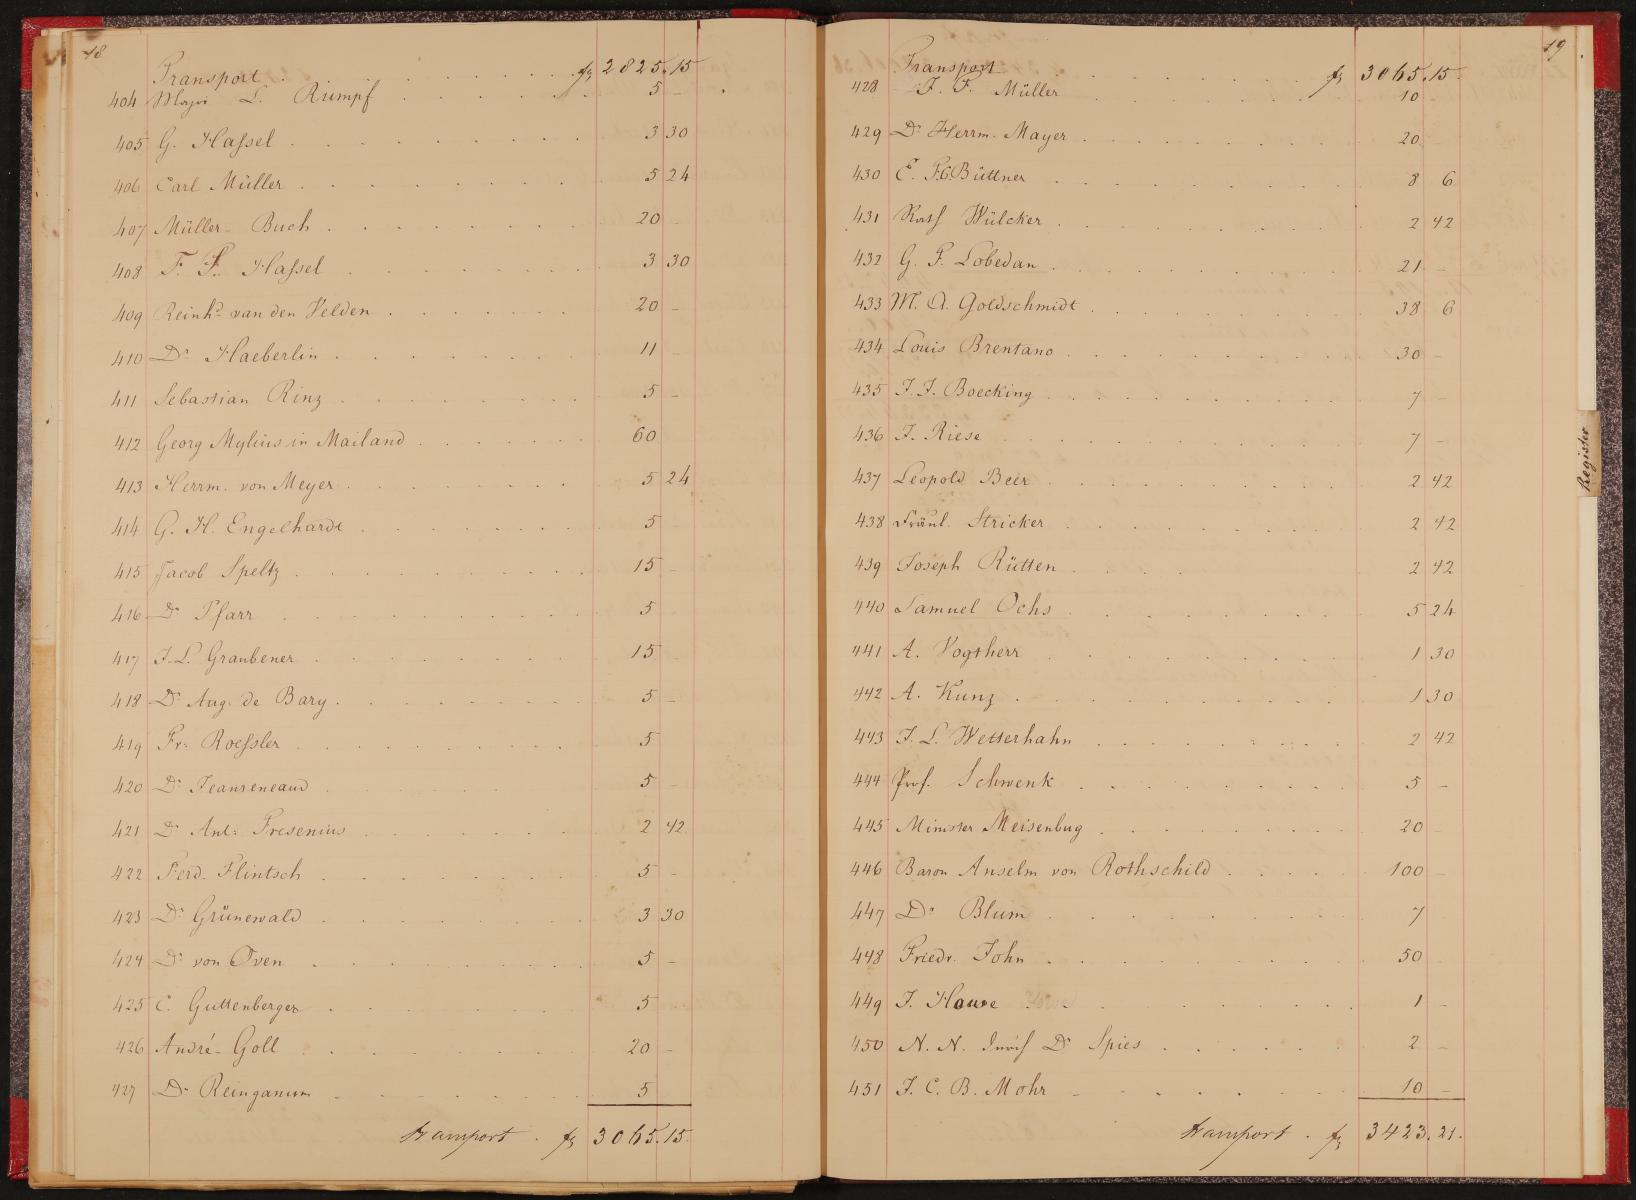 48
Transport . . . . . . . . . fl 2825.15
404 Major L. Rumpf . . . . . 5 -
405 G. Haſsel . . . . . . . . 3 30
406 Carl Müller . . . . . . . . 5 24
407 Müller-Buch . . . . . . . . 20 -
408 F. P. Haſsel . . . . . . . 3 30
409 Reinhd van den Velden . . . . . . 20 -
410 Dr Haeberlin . . . . . . . 11 -
411 Sebastian Rinz . . . . . . . 5 -
412 Georg Mylius in Mailand . . . . . 60
413 Herrm. von Meyer . . . . . . . 5 24
414 G. H. Engelhardt . . . . . . 5
415 Jacob Speltz . . . . . . . . 15 -
416 Dr Pfarr . . . . . . . . 5
417 J. L. Graubener . . . . . . . 15 -
418 Dr Aug. de Bary . . . . . . . 5 -
419 Fr. Roeſsler . . . . . . . . 5
420 Dr Jeanreneaud . . . . . . 5 -
421 Dr Ant: Fresenius . . . . . . 2 42
422 Ferd. Flintsch . . . . . . . 5 -
423 Dr Grünewald . . . . . . . 3 30
424 Dr von Oven . . . . . . . . 5 -
425 C. Guttenberger . . . . . . . 5
426 André-Goll . . . . . . . 20 -
427 Dr Reinganum . . . . . . . 5
transport . fl 3065.15.
49
Transport . . . . . . . . fl 3065.15.
428 J. F. Müller . . . . . . 10 -
429 Dr Herrm. Mayer . . . . . . . . 20
430 E. F. C. Büttner . . . . . . . . 8 6
431 Rath Wülcker . . . . . . . . 2 42
432 G. F. Lobedan . . . . . . . . 21 -
433 M. A. Goldschmidt . . . . . . . 38 6
434 Louis Brentano . . . . . . . . 30 -
435 J. J. Boecking . . . . . . . . 7 -
436 J. Riese . . . . . . . . 7 -
437 Leopold Beer . . . . . . . . 2 42
438 Fräul. Stricker . . . . . . . . 2 42
439 Joseph Rütten . . . . . . . 2 42
440 Samuel Ochs . . . . . . . . 5 24
441 A. Vogtherr . . . . . . . . 1 30
442 A. Kunz . . . . . . . . 1 30
443 J. L. Wetterhahn . . . . . . . 2 42
444 Prof. Schwenk . . . . . . . 5 -
445 Minister Meisenbug . . . . . . . 20 -
446 Baron Anselm von Rothschild . . . . 100 -
447 Dr Blum . . . . . . . . 7
448 Friedr. John . . . . . . . . 50
449 J. Hauve . . . . . . . 1 -
450 N. N. durch Dr Spies . . . . . . 2 -
451 J. C. B. Mohr . . . . . . . 10 -
transport . fl 3423.21.
Register